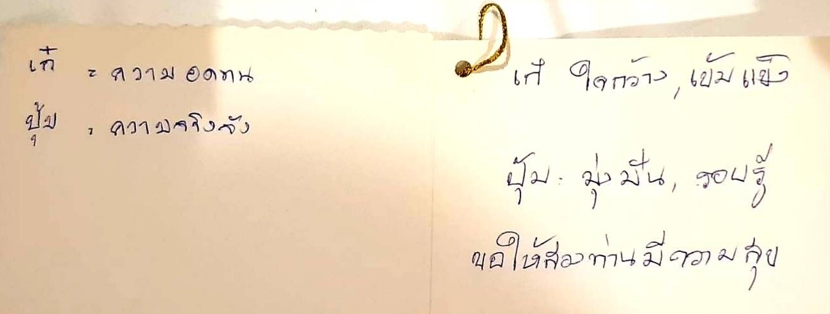 เก๋ = ความอดทน
ปุ้ม = ความจริงจัง
เก๋ ใจกว้าง, เข้มแข็ง
ปุ้ม = มุ่งมั่น, รอบรู้
ขอให้สองท่านมีความสุข